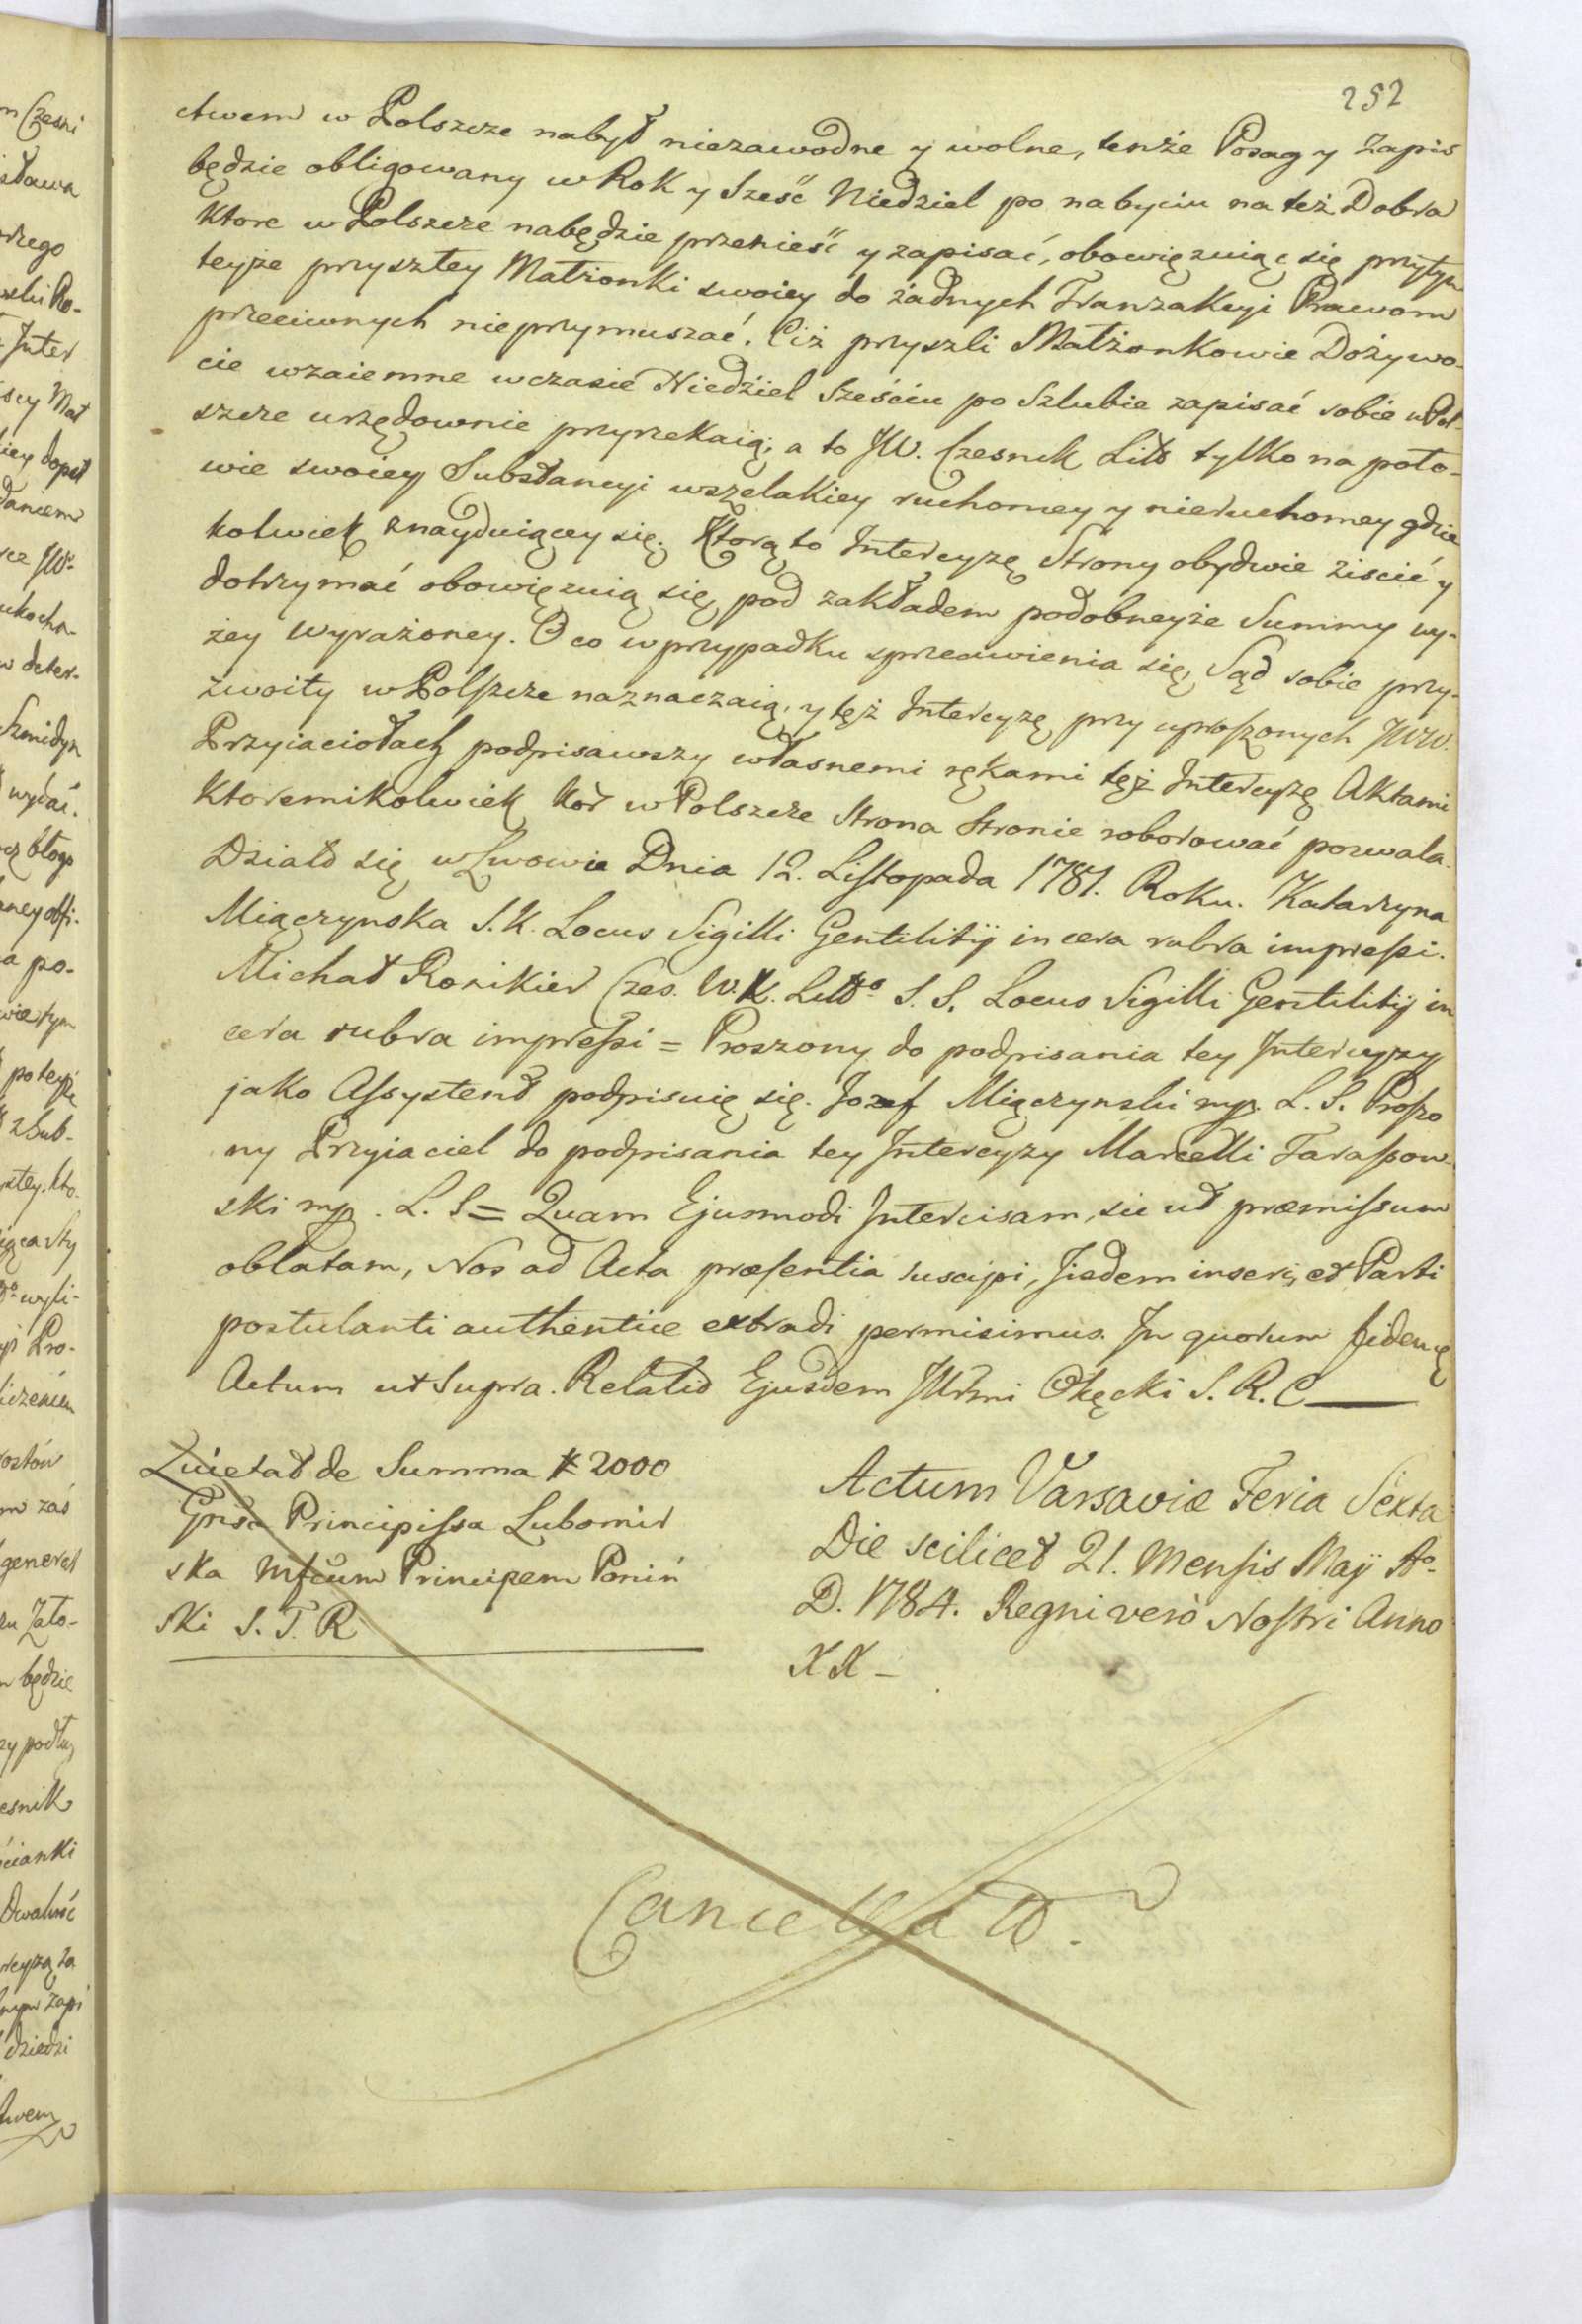 252
ctwem w Polszcze nabył niezawodne y wolne, tenże Posag y Zapis
będzie obligowany w Rok y Sześć Niedziel po nabyciu na też Dobra
ktore w Polszcze nabędzie przenieść y zapisać, obowięzuiąc się przytym
teyże przyszłey Małżonki swoiey do żadnych Tranzakcyi Prawom
przeciwnych nieprzymuszać. Ciż przyszli Małżonkowie Dożywo-
cie wzaiemne w czasie Niedziel Sześciu po Szlubie zapisać sobie w Pol-
szcze urzędownie przyrzekaią; a to JW. Czesnik Litt tylko na poło-
wie swoiey Substancyi wszelakiey ruchomey y nieruchomey gdzie
kolwiek znayduiącey się. Ktorą to Intercyzę Strony obydwie ziscić y
dotrzymać obowięzuią się, pod zakładem podobneyże Summy wy-
żey wyrażoney. O co w przypadku sprzeciwienia się, Sąd sobie przy-
zwoity w Polszcze naznaczaią, y tęż Intercyzę przy uproszonych JWW.
Przyiaciołach podpisawszy własnemi rękami tęż Intercyzę Aktami
ktoremikolwiek kor w Polszcze Strona Stronie roborować pozwala.
Działo się w Lwowie Dnia 12. Listopada 1781. Roku. Katarzyna
Miączynska S.K. Locus Sigilli Gentilitij in cera rubra impressi.
Michał Ronikier Czes. W.X. Litto S. S. Locus Sigilli Gentilitij in
cera rubra impressi = Proszony do podpisania tey Intercyzy
jako Assystent podpisuię się. Jozef Miączynski mp. L. S. Proszo
ny Przyiaciel do podpisania tey Intercyzy Marcelli Tarassow-
ski mp. L. S = Quam Ejusmodi Intercisam, sic ut præmissum
oblatam, Nos ad Acta præsentia suscipi, Jisdem inseri, et Parti
postulanti authentice extradi permisimus. In quorum fidem
Actum ut Supra. Relatio Ejusdem Illrmi Okęcki S. R. C
Quietat de Summa # 2000
Gnsa Principissa Lubomir
ska Mfcum Principem Poniń
ski S. T. R
Actum Varsaviæ Feria Sexta
Die scilicet 21. Mensis Maij Ao.
D. 1784. Regni vero Nostri Anno
XX -
Cancellat.
m Czesni
sława
rzego
Inter
scy Mał
dopeł
daniem
ukocha-
w deter-
wydać.
błogo
a po-
po teyże
z Sub-
Pro-
zaś
general
Zało-
będzie
esnik
cianki
Owalność
dziedzi
twem